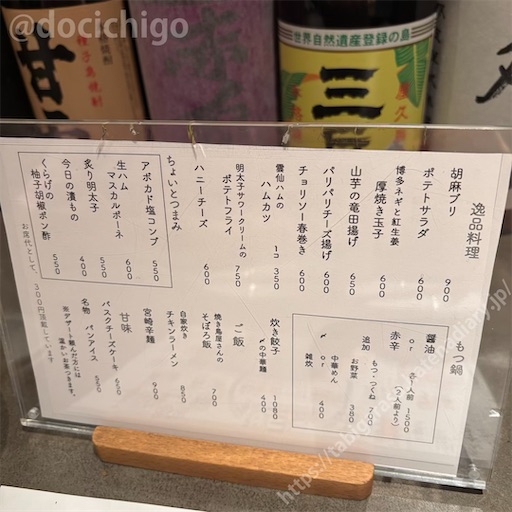 @docichigo
甘
種子島焼酎
世界自然遺産登録の島
三
屋久島
逸品料理
胡麻ブリ 900
ポテトサラダ 600
博多ネギと紅生姜
厚焼き玉子 600
山芋の竜田揚げ 650
パリパリチーズ揚げ 600
チョリソー春巻き 600
雲仙ハムの
ハムカツ 1コ 350
明太子サワークリームの
ポテトフライ 750
ハニーチーズ 600
ちょいとつまみ
アボカド塩コンブ 550
生ハム
マスカルポーネ 600
炙り明太子 400
今日の漬もの 550
くらげの
柚子胡椒ポン酢 550
お席代として、300円頂戴しています
もつ鍋
醤油
or
赤辛 各1人前 1500
(2人前より)
追加 もつ・つくね 700
お野菜 380
〆 中華めん
or
雑炊 400
炊き餃子 1080
〆の中華麺 400
ご飯
焼き鳥屋さんの
そぼろ飯 700
自家炊き
チキンラーメン 850
宮崎辛麺 900
甘味
バスクチーズケーキ 650
名物 パンアイス 550
※デザート頼んだ方には
温かいお茶つきます。